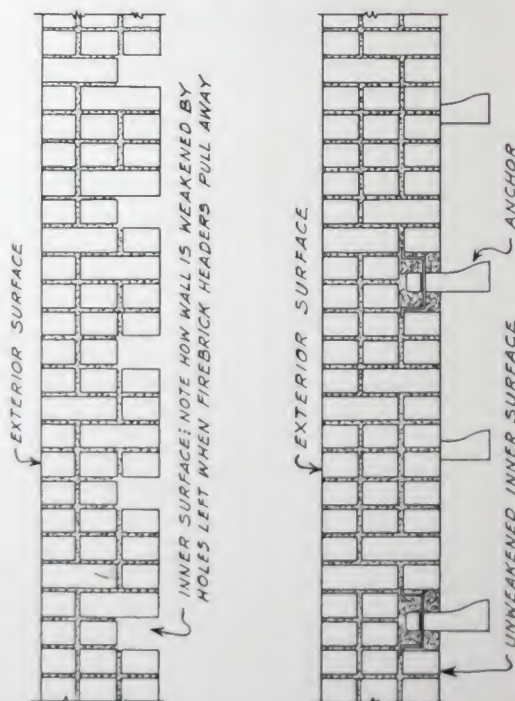 EXTERIOR SURFACE
INNER SURFACE; NOTE HOW WALL IS WEAKENED BY
HOLES LEFT WHEN FIREBRICK HEADERS PULL AWAY
EXTERIOR SURFACE
UNWEAKENED INNER SURFACE
ANCHOR